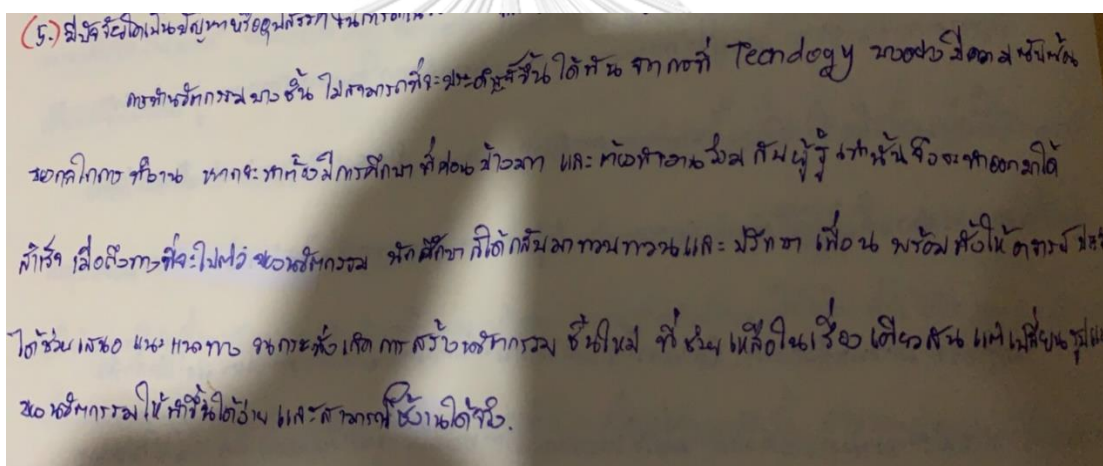 (5.) มีปัจจัยใดเป็นปัญหาหรืออุปสรรค ในการ
การทำนวัตกรรมบางชิ้น ไม่สามารถที่จะประดิษฐ์ขึ้นได้ทัน จากการที่ Teandogy บางอย่างมีความซับซ้อน
ของกลไกการทำงาน หากจะทำต้องมีการศึกษาที่ค่อนข้างมาก และต้องทำงานร่วมกับผู้รู้เท่านั้นจึงจะทำออกมาได้
สำเร็จ เมื่อถึงทางที่จะไปต่อของนวัตกรรม นักศึกษาก็ได้กลับมาทวนทวนและปรึกษาเพื่อน พร้อมทั้งให้อาจารย์
ได้ช่วยเสนอแนะแนวทาง จนกระทั่งเกิดการสร้างนวัตกรรม ชิ้นใหม่ ที่ช่วยเหลือในเรื่องเดียวกัน แต่เปลี่ยน
ของนวัตกรรมให้ทำขึ้นได้ง่าย และสามารถใช้งานได้จริง.